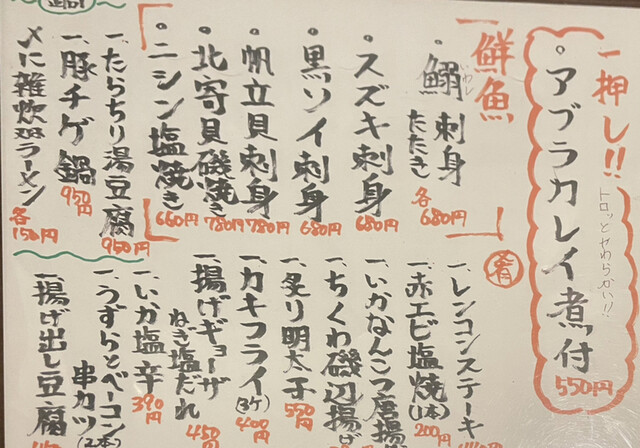 一押し!!
・アブラカレイ煮付
トロッとヤわらかい!!
550円
一鮮魚
・鰯刺身
いわし
たたき
各680円
・スズキ刺身
680円
・黒ソイ刺身
680円
・帆立貝刺身
780円
・北寄貝磯焼き
780円
・ニシン塩焼き
660円
一、たらちり湯豆腐
950円
一、豚チゲ鍋
950円
〆に雑炊 ラーメン
各150円
肴
一、レンコンステーキ
一、赤エビ塩焼(1本)
200円
一、いかなんこつ唐揚
一、ちくわ磯辺揚げ
一、炙り明太子
550円
一、カキフライ
(3ケ)
400円
一、揚げギョーザ
ねぎ塩だれ
450円
一、いか塩辛
390円
一、うずらとベーコン
串カツ
(2本)
一、揚げ出し豆腐